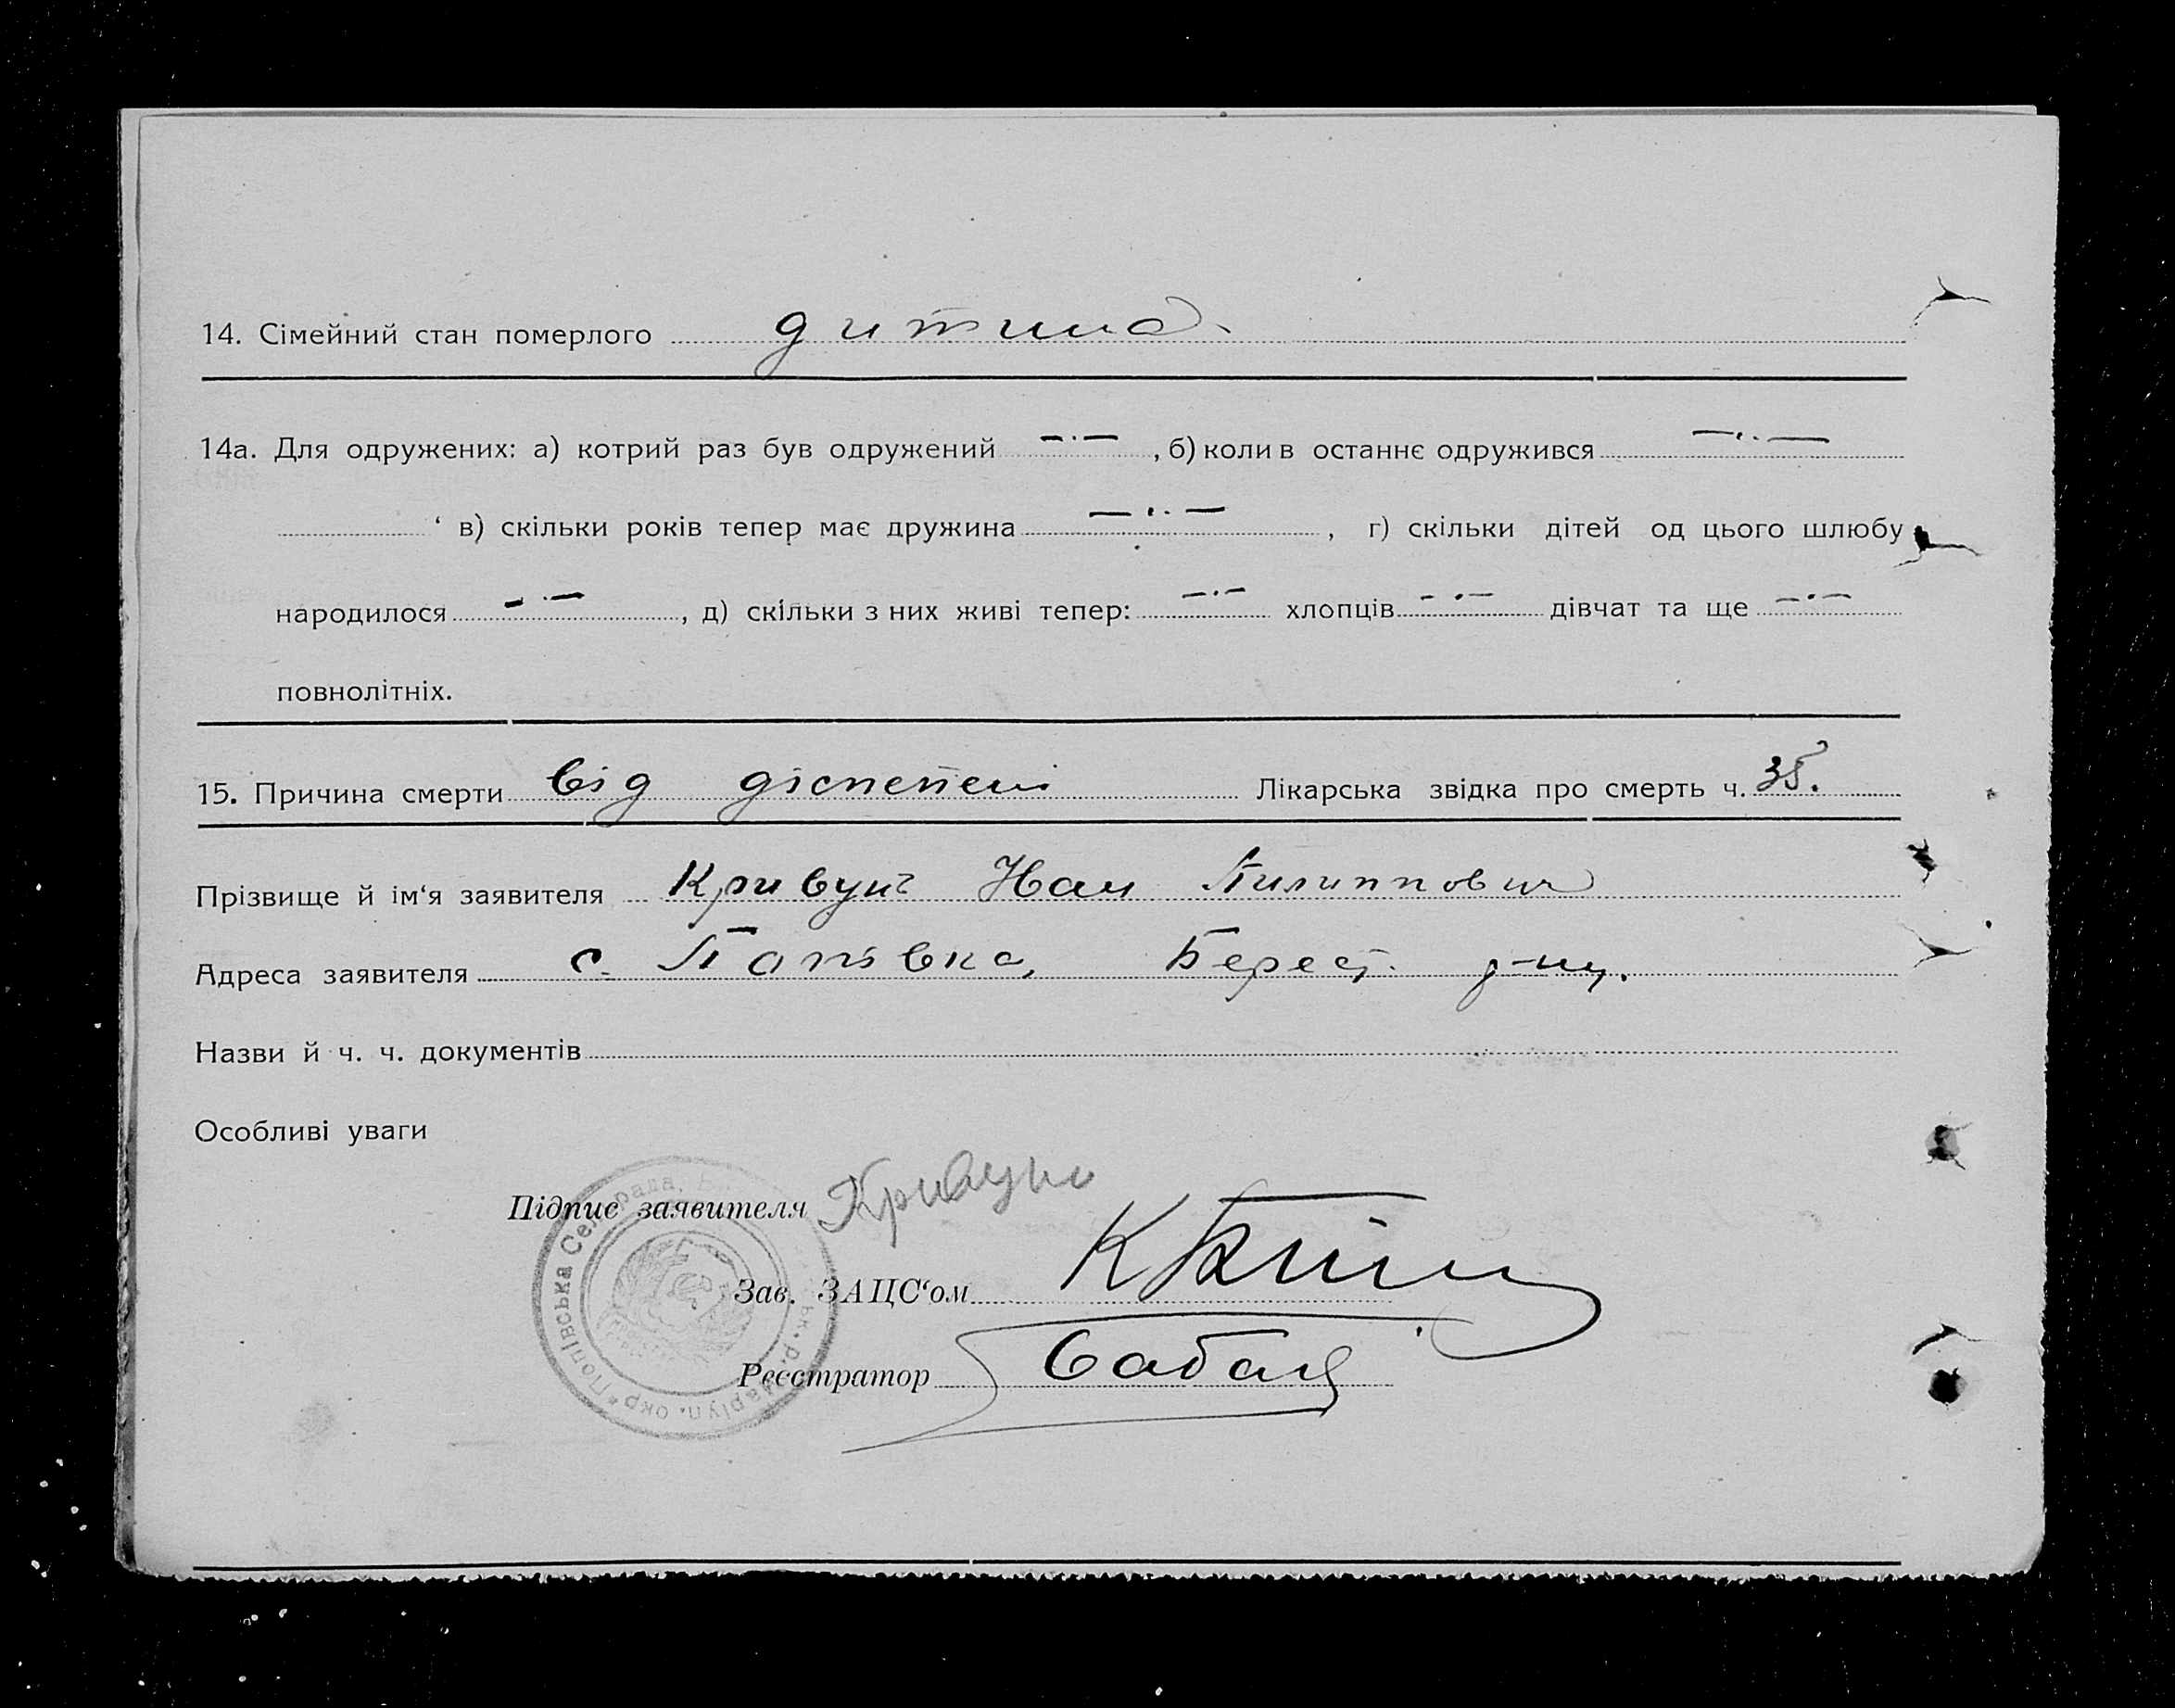 14. Сімейний стан померлого дитина
14а. Для одружених: а) котрий раз був одружений —·—, б) коли в останнє одружився —·—
‘ в) скільки років тепер має дружина —·—, г) скільки дітей од цього шлюбу
народилося —·—, д) скільки з них живі тепер: —·— хлопців —·— дівчат та ще —·—
повнолітніх.
15. Причина смерти від Лікарська звідка про смерть ч. 35.
Прізвище й ім‘я заявителя Кривунь Пилиппович
Адреса заявителя с. Попівка, Берест. р-ну.
Назви й ч. ч. документів
Особливі уваги
Підпис заявителя Кривунь
Зав. ЗАЦС‘ом
Реєстратор
Попівська Сел. рада, ьк. р. Маріуп. окр.